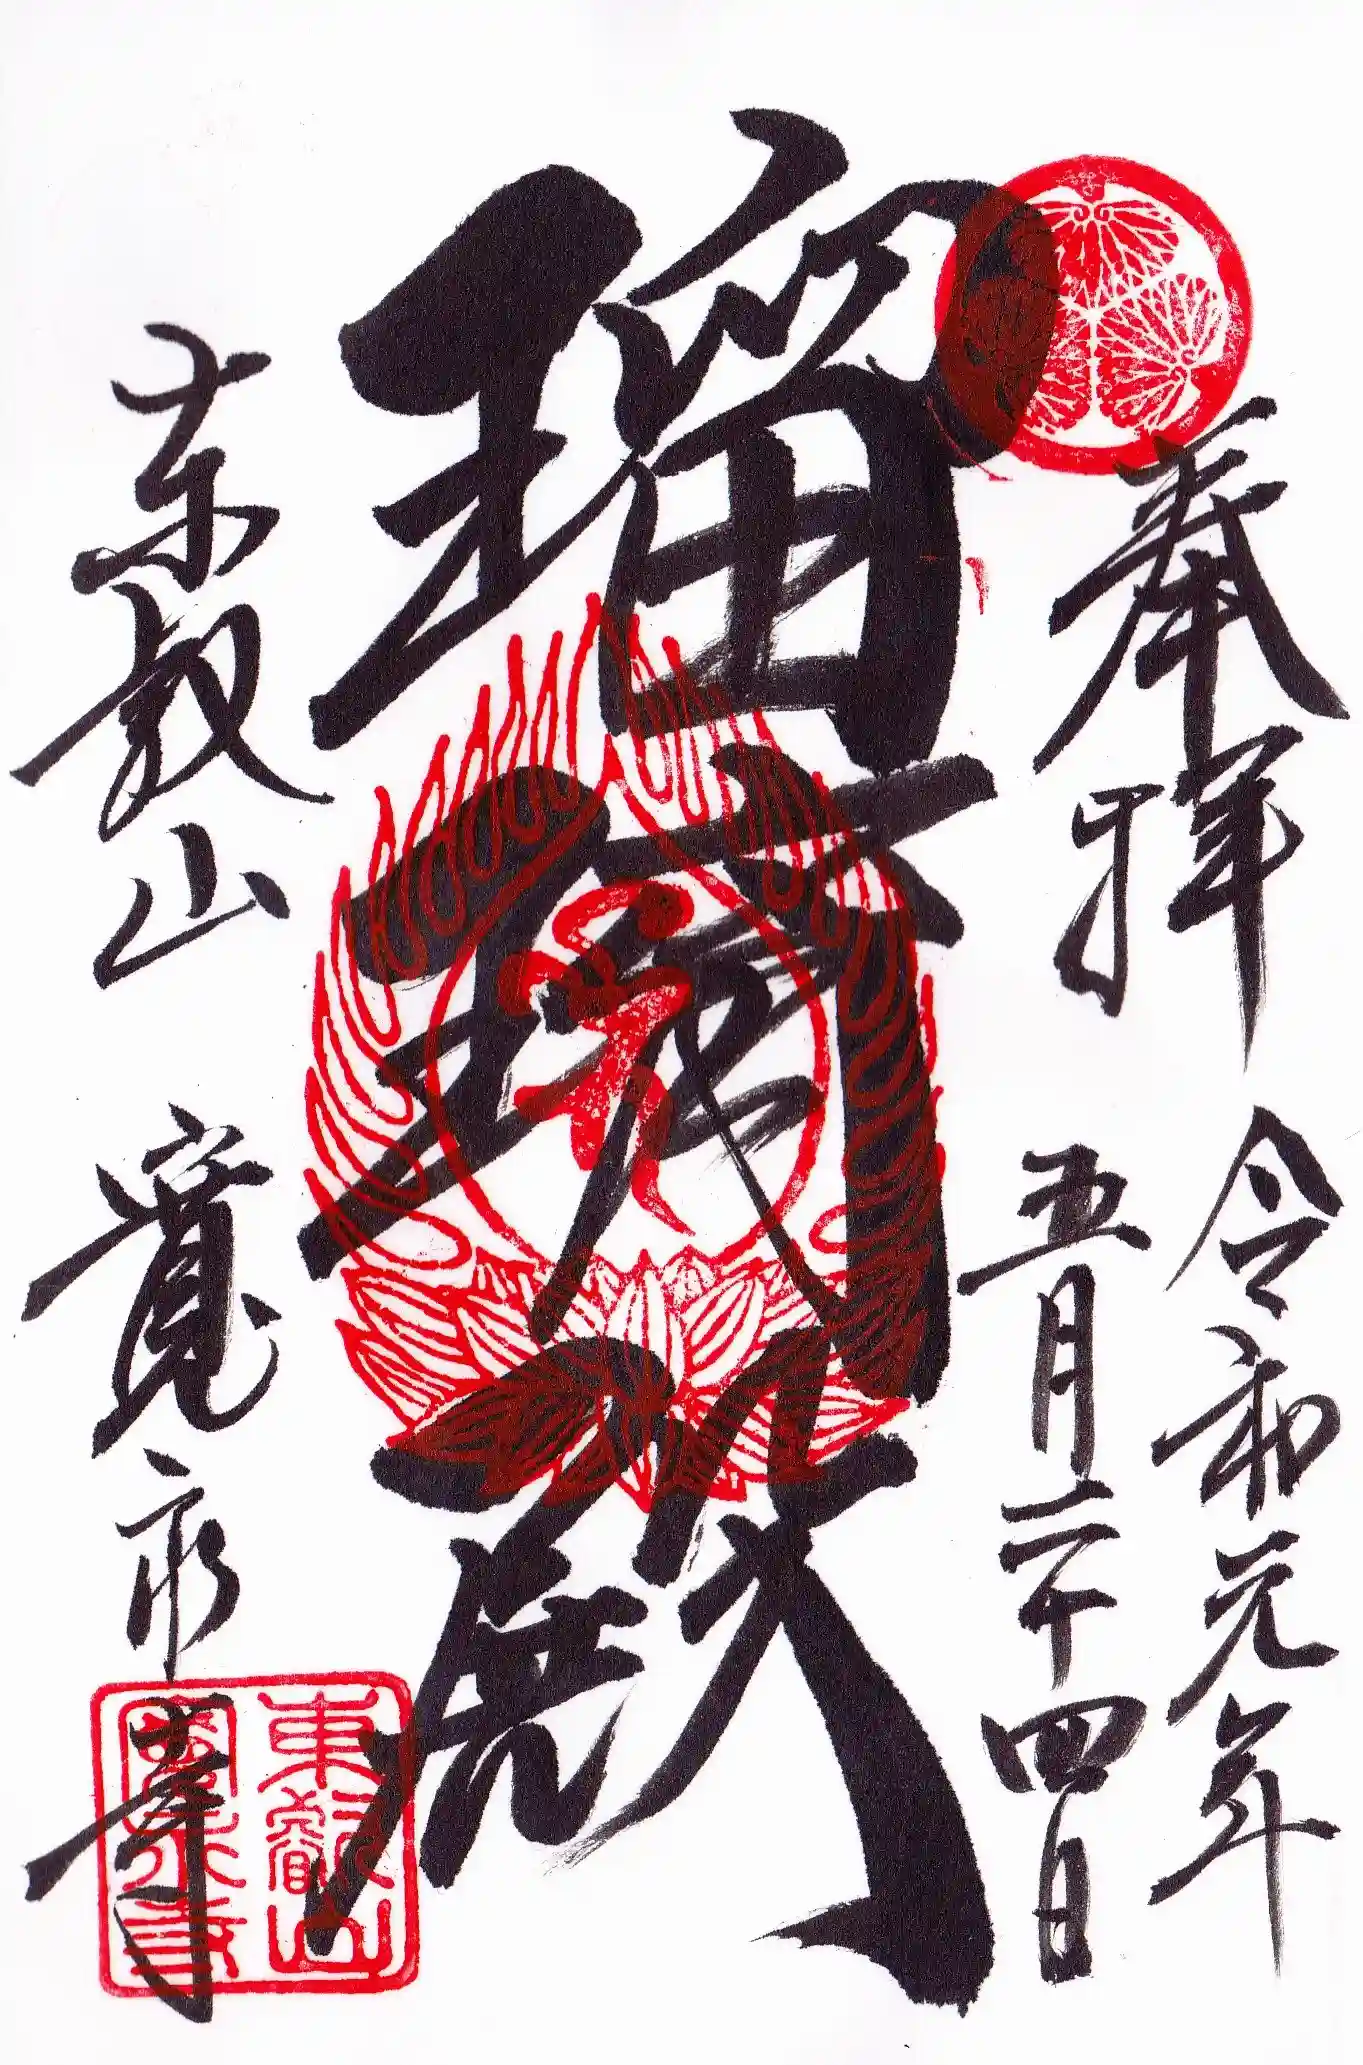 奉拝
令和元年
五月二十四日
瑠璃殿
東叡山 寛永寺
東叡山
寛永寺